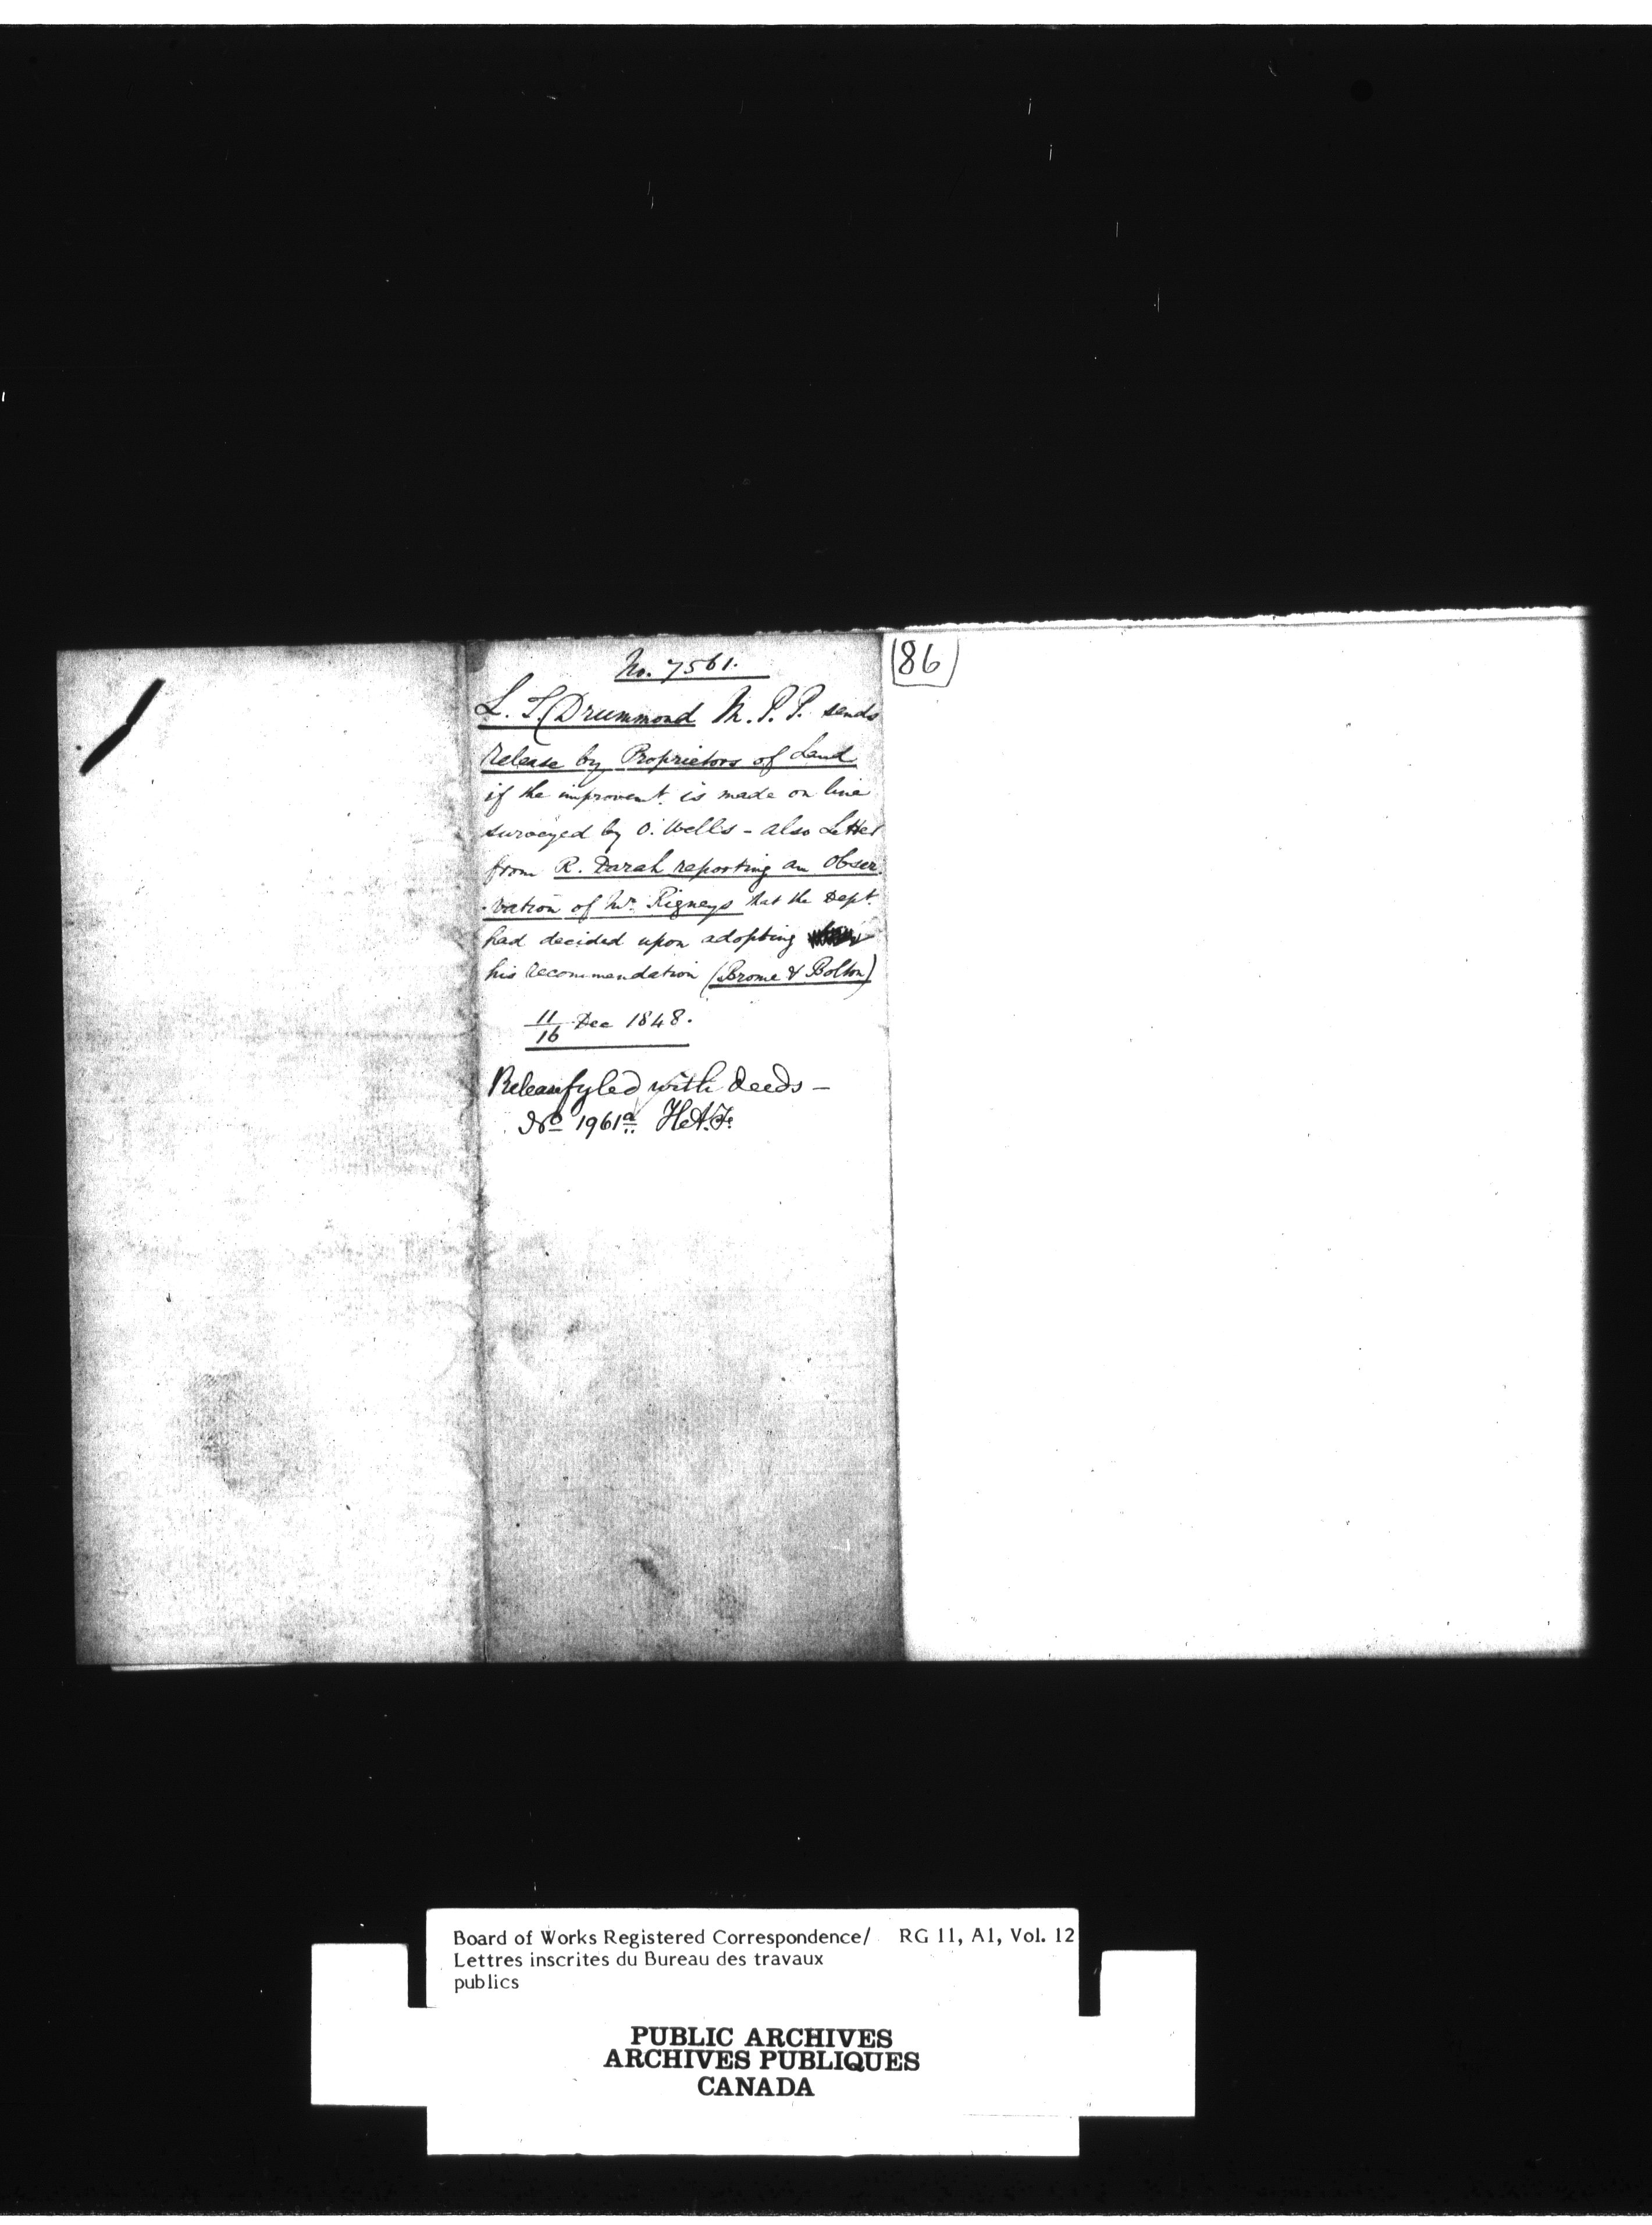 No. 7561.
L. T. Drummond M. P. P. sends
release by Proprietors of Land
if the improvemt. is made on line
surveyed by O. Wells - also Letter
from R. Darah reporting an Obser.
-vation of Mr. Rigneys that the Dept.
had decided upon adopting
his recommendation (Brome & Bolton)
11/16 Dec 1848.
Release fyled with deeds -
No 1961a H.A.F.
86
Board of Works Registered Correspondence/ RG 11, A1, Vol. 12
Lettres inscrites du Bureau des travaux
publics
PUBLIC ARCHIVES
ARCHIVES PUBLIQUES
CANADA